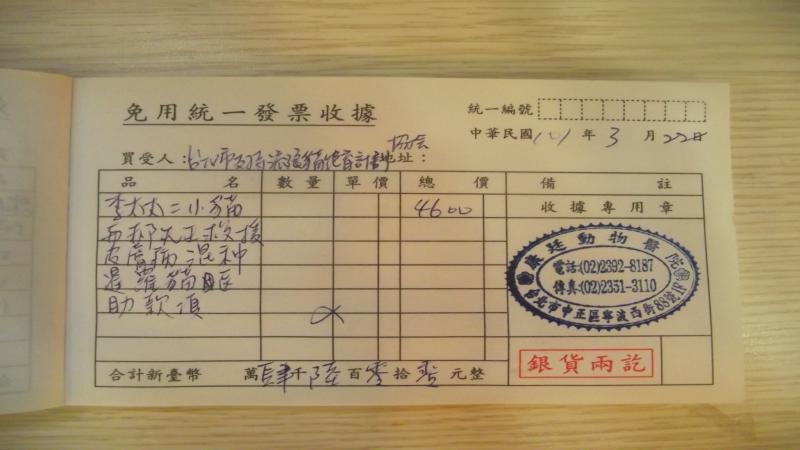 免用統一發票收據
統一編號
中華民國 101 年 3 月 22日
買受人：台北市支持流浪貓絕育計畫協會 地址：
品名 數量 單價 總價 備註
李太太二小貓 4600 收據專用章
西部 救援
皮膚病混种
暹羅貓醫
助款項
康廷動物醫院
電話:(02)2392-8187
傳真:(02)2351-3110
台北市中正區寧波西街88號1F
銀貨兩訖
合計新臺幣 萬肆千陸百零拾零元整